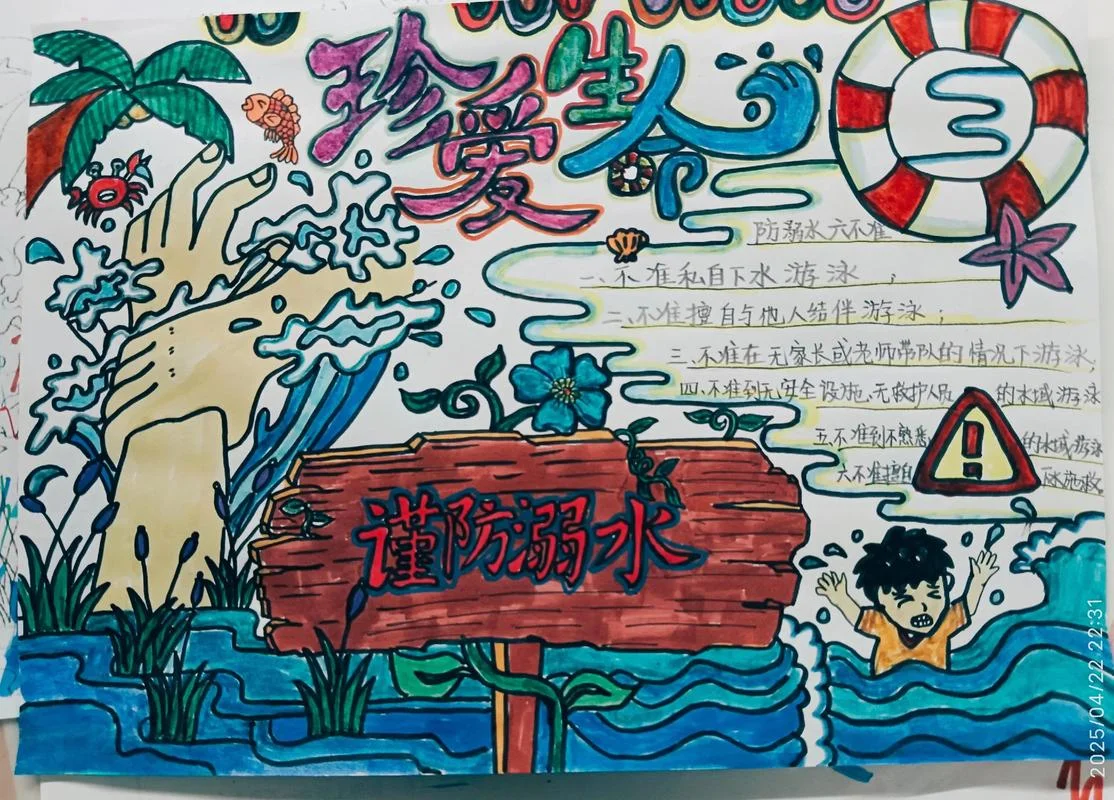 珍爱生命
防溺水六不准
一、不准私自下水游泳；
二、不准擅自与他人结伴游泳；
三、不准在无家长或老师带队的情况下游泳；
四、不准到无安全设施、无救护人员的水域游泳
五、不准到不熟悉的水域游泳
六不准擅自 水施救
!
谨防溺水
2025/04/22 22:31